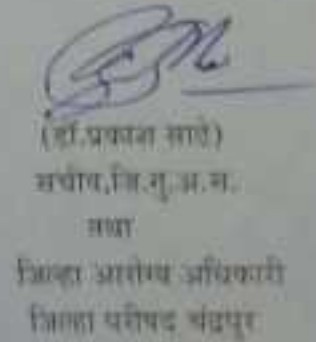 (डॉ.प्रकाश साठे)
सचीव,जि.गु.अ.स.
तथा
जिल्हा आरोग्य अधिकारी
जिल्हा परीषद चंद्रपुर